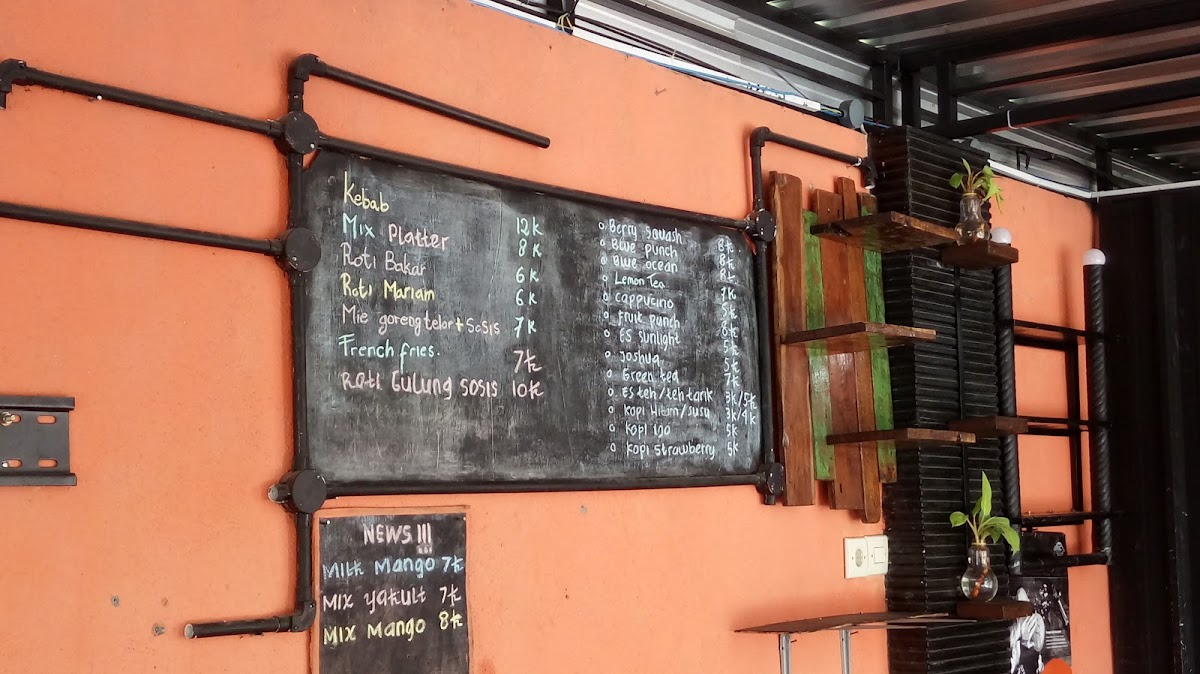 Kebab 12k
Mix Platter 8k
Roti Bakar 6k
Roti Mariam 6k
Mie goreng telor + Sosis 7k
French fries. 7k
Roti Gulung Sosis 10k
Berry Squash 8k
Blue punch 8k
Blue ocean 8k
Lemon Tea 7k
cappucino 5k
Fruit punch 8k
ES sunlight 5k
Joshua 5k
Green tea 7k
ES teh/teh tarik 3k/5k
Kopi Hitam/susu 3k/4k
Kopi Ijo 5k
Kopi Strawberry 5k
NEWS !!!
Milk Mango 7k
Mix Yakult 7k
Mix Mango 8k